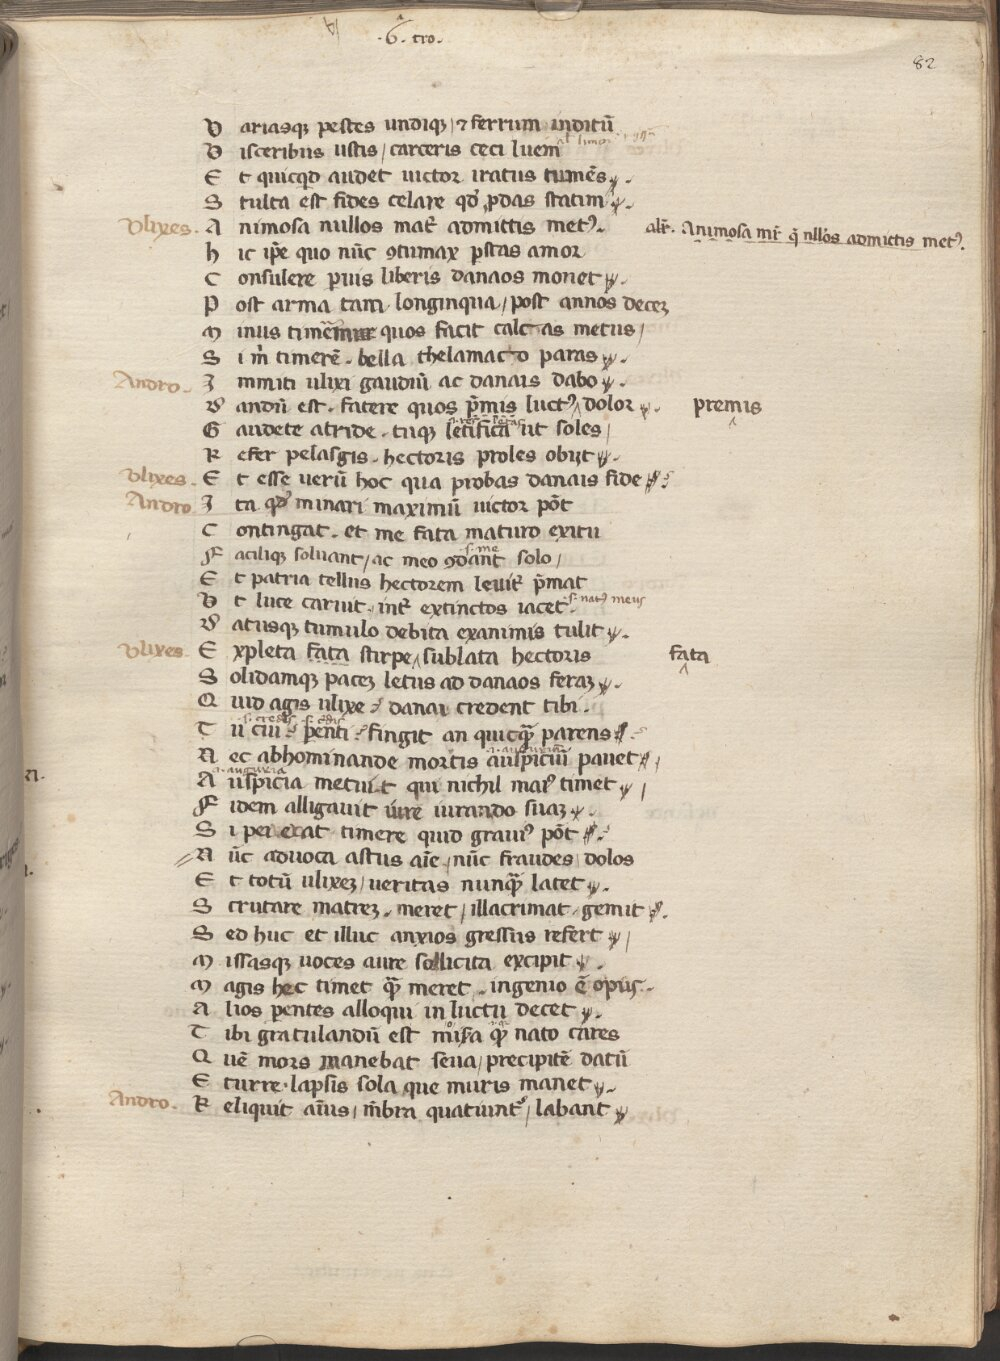 .6ᵃ. tro.
82
V ariasqꝫ pestes undiqꝫ / ⁊ ferrum inditū
V isceribus ustis / carceris ceci luem
E t quicqd audet uictor iratus tumēs.
S tulta est fides celare qđ ꝓdas statim.
Vlixes. A nimosa nullos mat̄ admittis metꝰ. alr̄. Animosa mr̄ q̄ nllōs admittis metꝰ.
h ic ip̄e quo nūc ꝯtumax p̄stas amor
C onsulere ꝑuis liberis danaos monet.
P ost arma tam longinqua / post annos decez
M inus timerem quos facit calcas metus /
S i m̄ timerē. bella thelamaco paras.
Andro. I mmiti ulixi gaudiū ac danais dabo.
D andū est. fatere quos p̄mis luctꝰ, dolor. premis
G audete atride. tuqꝫ letificā ut soles /
R efer pelasgis. hectoris proles obijt.
Vlixes. E t esse uerū hoc qua probas danais fide
Andro. I ta qđ minari maximū uictor pōt
C ontingat. et me fata maturo exitu
F aciliqꝫ soluant / ac meo ꝯdant solo / s. me
E t patria tellus hectorem leuit̄ p̄mat
V t luce caruit. int̄ extinctos iacet. s. natꝰ meus
D atusqꝫ tumulo debita exanimis tulit.
Vlixes. E xpleta fata stirpe sublata hectoris fata
S olidamqꝫ pacez letus ad danaos feraz.
Q uid agis ulixe? danai credent tibi.
T u cui? s. credis p̄enti? fingit an quicqꝫ parens
N ec abhominande mortis auspiciū pauet /
A uspicia metuit qui nichil maiꝰ timet / auguria
F idem alligauit iure iurando suaz.
S i peierat timere quid grauiꝰ pōt
N ūc aduoca astus aīe, nūc fraudes / dolos
E t totū ulixez / ueritas nunqꝫ latet.
S crutare matrez. meret / illacrimat / gemit.
S ed huc et illuc anxios gressus refert /
M issasqꝫ uoces aure sollicita excipit.
M agis hec timet qꝫ meret. ingenio ē opus.
A lios ꝑentes alloqui in luctu decet.
T ibi gratulandū est misa qꝫ nato cares
Q uē mors manebat seua / precipitē datū
E turre. lapsis sola que muris manet.
Andro. R eliquit aīus / m̄bra quatiunt̄ / labant